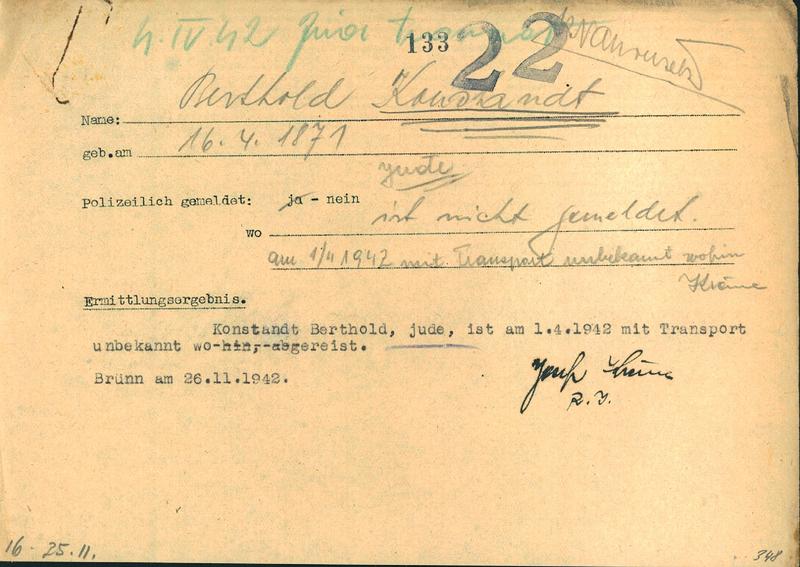 4. IV. 42 Židi transport
133
22
Name: Berthold Konstandt
geb.am 16. 4. 1871
Jude
Polizeilich gemeldet: ja - nein
ist nicht gemeldet.
wo
am 1/4 1942 mit Transport unbekannt wohin
Ermittlungsergebnis.
Konstandt Berthold, jude, ist am 1.4.1942 mit Transport
unbekannt wo-hin, abgereist.
Brünn am 26.11.1942.
16 - 25. 11.
348